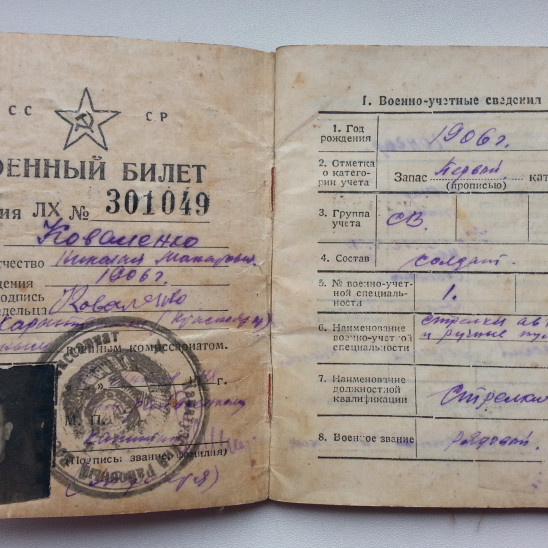 СС СР
ОЕННЫЙ БИЛЕТ
ия ЛХ № 301049
Коваленко
чество Николай Макарович
дения 1906г.
одпись Коваленко
дельца
оенным комиссариатом.
г.
М. П.
Капитан
(Подпись: звание, фамилия)
I. Военно-учетные сведения
1. Год рождения 1906г.
2. Отметка о катего-
рии учета Запас Первой кат
(прописью)
3. Группа учета СВ.
4. Состав солдат.
5. № военно-учет-
ной специаль-
ности 1.
6. Наименование стрелки ав
военно-учетной и ручные пу
специальности
7. Наименование
должностной
квалификации Стрелк
8. Военное звание рядовой.